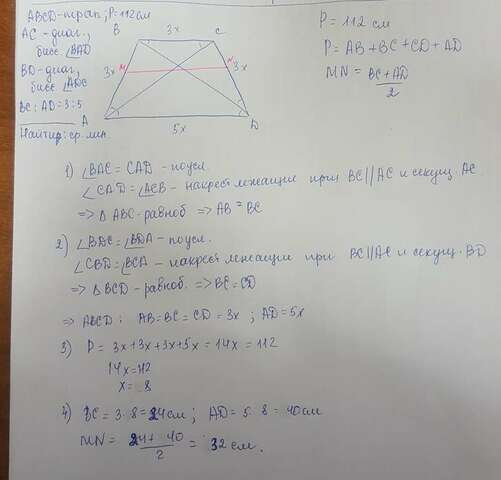 ABCD-трап; P=112см
AC-диаг.,
бисс ∠BAD
BD-диаг.,
бисс ∠ADC
BC:AD=3:5
Найти: ср. лин.
B 3x C
3x M N 3x
A D
5x
P = 112 см
P = AB+BC+CD+AD
MN = BC+AD
2
1) ∠BAC = CAD - по усл.
∠CAD = ∠ACB - накрест лежащие при BC||AC и секущ. AC
=> Δ ABC-равноб => AB = BC
2) ∠BDC = ∠BDA - по усл.
∠CBD = ∠BCA - накрест лежащие при BC||AC и секущ. BD
=> Δ BCD - равноб. => BC = CD
=> ABCD: AB=BC=CD = 3x ; AD=5x
3) P = 3x+3x+3x+5x = 14x = 112
14x=112
x= 8
4) BC = 3·8=24см; AD = 5·8 = 40см
MN = 24+40 = 32 см.
2